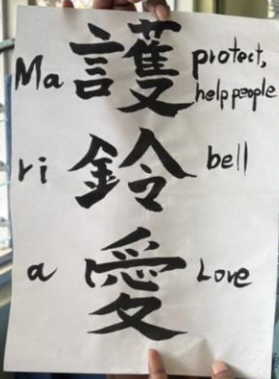 Ma 護 protect,
help people
ri 鈴 bell
a 愛 Love